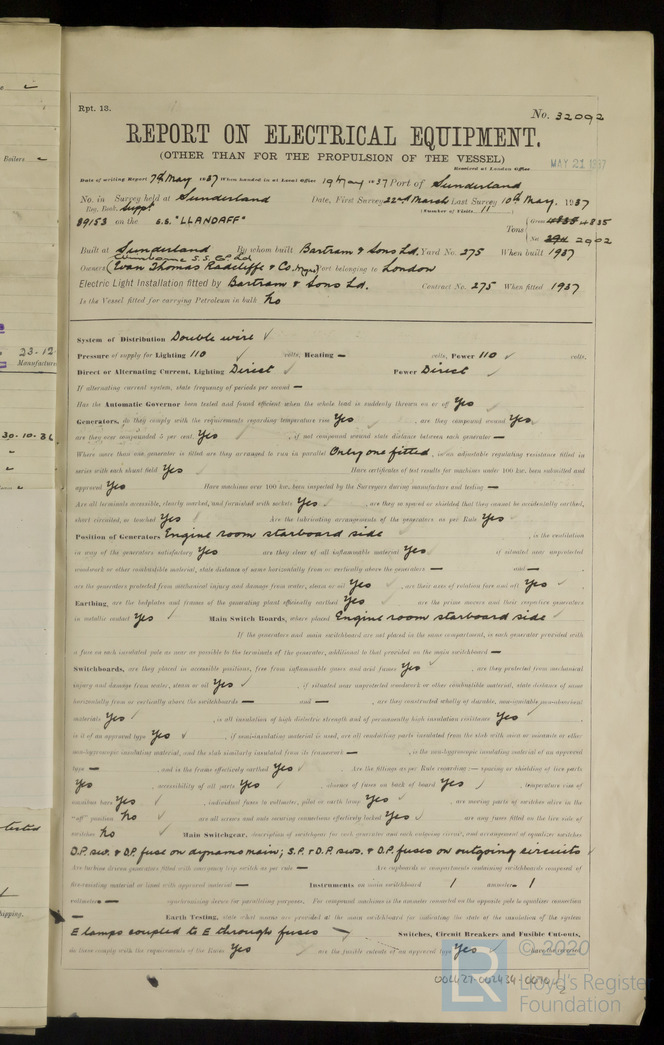 Rpt. 13.
No. 32092
REPORT ON ELECTRICAL EQUIPMENT.
(OTHER THAN FOR THE PROPULSION OF THE VESSEL)
Received at London Office MAY 21 1937
Date of writing Report 7th May 1937 When handed in at Local Office 19 May 1937 Port of Sunderland
No. in Survey held at Sunderland Date, First Survey 22nd March Last Survey 10th May. 1937
Reg. Book. Suppt. (Number of Visits 11)
89153 on the S.S. "LLANDAFF" Tons { Gross 4835 4835
Net 2902
Built at Sunderland By whom built Bartram & Sons Ld. Yard No. 275 When built 1937
S.S. Co Ld
Owners (Evan Thomas Radcliffe & Co. Mgrs) Port belonging to London
Electric Light Installation fitted by Bartram & Sons Ld. Contract No. 275 When fitted 1937
Is the Vessel fitted for carrying Petroleum in bulk No
System of Distribution Double wire ✓
Pressure of supply for Lighting 110 ✓ volts, Heating — volts, Power 110 ✓ volts.
Direct or Alternating Current, Lighting Direct ✓ Power Direct ✓
If alternating current system, state frequency of periods per second —
Has the Automatic Governor been tested and found efficient when the whole load is suddenly thrown on or off Yes ✓
Generators, do they comply with the requirements regarding temperature rise Yes ✓ , are they compound wound Yes ✓
are they over compounded 5 per cent. Yes ✓ , if not compound wound state distance between each generator —
Where more than one generator is fitted are they arranged to run in parallel Only one fitted , is an adjustable regulating resistance fitted in
series with each shunt field Yes ✓ Have certificates of test results for machines under 100 kw. been submitted and
approved Yes ✓ Have machines over 100 kw. been inspected by the Surveyors during manufacture and testing —
Are all terminals accessible, clearly marked, and furnished with sockets Yes ✓ , are they so spaced or shielded that they cannot be accidentally earthed,
short circuited, or touched Yes ✓ Are the lubricating arrangements of the generators as per Rule Yes ✓
Position of Generators Engine room starboard side , is the ventilation
in way of the generators satisfactory Yes ✓ are they clear of all inflammable material Yes ✓ , if situated near unprotected
woodwork or other combustible material, state distance of same horizontally from or vertically above the generators — and —
are the generators protected from mechanical injury and damage from water, steam or oil Yes ✓ , are their axes of rotation fore and aft Yes ✓
Earthing, are the bedplates and frames of the generating plant efficiently earthed Yes ✓ are the prime movers and their respective generators
in metallic contact Yes ✓ Main Switch Boards, where placed Engine room starboard side ✓
If the generators and main switchboard are not placed in the same compartment, is each generator provided with
a fuse on each insulated pole as near as possible to the terminals of the generator, additional to that provided on the main switchboard —
Switchboards, are they placed in accessible positions, free from inflammable gases and acid fumes Yes ✓ , are they protected from mechanical
injury and damage from water, steam or oil Yes ✓ , if situated near unprotected woodwork or other combustible material, state distance of same
horizontally from or vertically above the switchboards — and — , are they constructed wholly of durable, non-ignitable non-absorbent
materials Yes ✓ , is all insulation of high dielectric strength and of permanently high insulation resistance Yes ✓
is it of an approved type Yes ✓ , if semi-insulating material is used, are all conducting parts insulated from the slab with mica or micanite or other
non-hygroscopic insulating material, and the slab similarly insulated from its framework — , is the non-hygroscopic insulating material of an approved
type — , and is the frame effectively earthed Yes ✓ Are the fittings as per Rule regarding :— spacing or shielding of live parts
Yes ✓ , accessibility of all parts Yes ✓ , absence of fuses on back of board Yes ✓ , temperature rise of
omnibus bars Yes ✓ , individual fuses to voltmeter, pilot or earth lamp Yes ✓ , are moving parts of switches alive in the
"off" position No ✓ are all screws and nuts securing connections effectively locked Yes ✓ are any fuses fitted on the live side of
switches No ✓ Main Switchgear, description of switchgear for each generator and each outgoing circuit, and arrangement of equalizer switches
D.P. sw. & D.P. fuse on dynamo main; S.P. & D.P. sws. & D.P. fuses on outgoing circuits ✓
Are turbine driven generators fitted with emergency trip switch as per rule — Are cupboards or compartments containing switchboards composed of
fire-resisting material or lined with approved material — Instruments on main switchboard 1 ammeter 1
voltmeter — synchronising device for paralleling purposes. For compound machines is the ammeter connected on the opposite pole to equaliser connection
— Earth Testing, state what means are provided at the main switchboard for indicating the state of the insulation of the system
E lamps coupled to E through fuses ✓ Switches, Circuit Breakers and Fusible Cut-outs,
do these comply with the requirements of the Rules Yes ✓ are the fusible cutouts of an approved type Yes ✓ have the reversed
LR © 2020
Lloyd's Register
Foundation
Boilers
23-12
Manufacture
30.10.36
tested